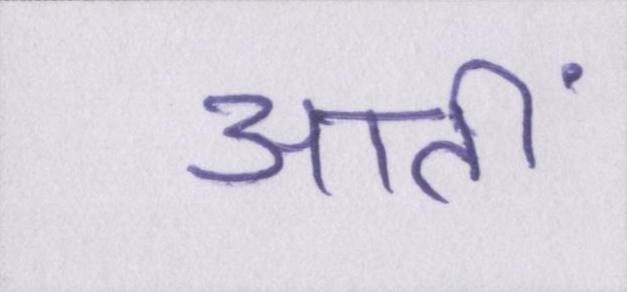 आतीं